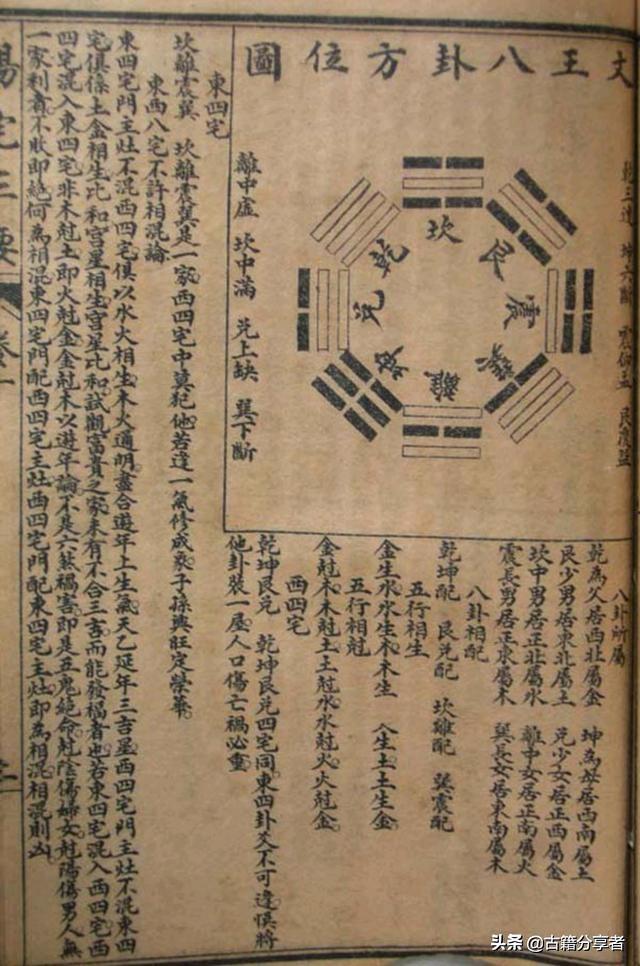 文王八卦方位圖
乾三連 坤六斷 震仰盂 艮覆盌
坎
艮
震
巽
離
坤
兌
乾
離中虛 坎中滿 兌上缺 巽下斷
八卦所屬
乾為父居西北屬金 坤為母居西南屬土
艮少男居東北屬土 兌少女居正西屬金
坎中男居正北屬水 離中女居正南屬火
震長男居正東屬木 巽長女居東南屬木
八卦相配
乾坤配 艮兌配 坎離配 巽震配
五行相生
金生水水生木木生 火生土土生金
五行相尅
金尅木木尅土土尅水水尅火火尅金
西四宅
乾坤艮兌 乾坤艮兌四宅同東四卦爻不可逢悞將
他卦裝一屋人口傷亡禍必重
東四宅
坎離震巽 坎離震巽是一家西四宅中莫犯他若逢一氣修成象子孫興旺定榮華
東西八宅不許相混論
東四宅門主灶不混西四宅俱以水火相生木火通明盡合遊年上生氣天乙延年三吉星西四宅門主灶不混東四
宅俱係土金相生比和宮星相生宮星比和試觀富貴之家未有不合三吉而能發福者也若東四宅混入西四宅西
四宅混入東四宅非木尅土即火尅金金尅木以遊年論不是六煞禍害即是五鬼絕命尅陰傷婦女尅陽傷男人無
一家利者不敗即絕何為相混東四宅門配西四宅主灶西四宅門配東四宅主灶即為相混相混則凶
陽宅三要 卷一
頭条 @古籍分享者